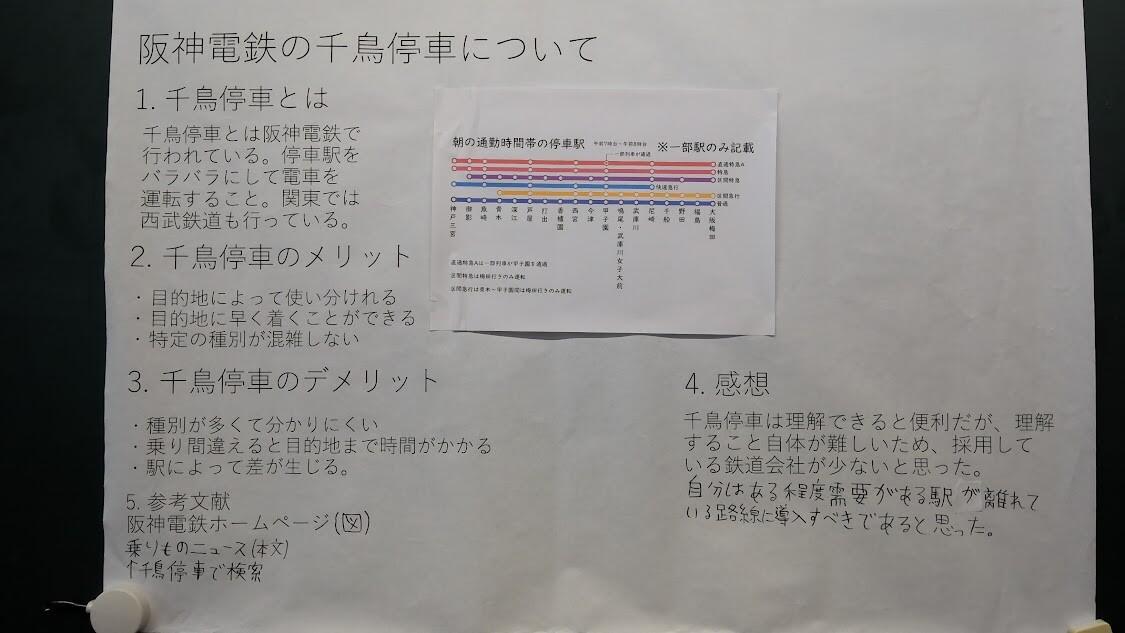 阪神電鉄の千鳥停車について
1. 千鳥停車とは
千鳥停車とは阪神電鉄で
行われている。停車駅を
バラバラにして電車を
運転すること。関東では
西武鉄道も行っている。
2. 千鳥停車のメリット
・目的地によって使い分けれる
・目的地に早く着くことができる
・特定の種別が混雑しない
朝の通勤時間帯の停車駅 午前7時台~午前8時台 ※一部駅のみ記載
一部列車が通過
直通特急A
特急
区間特急
快速急行
区間急行
普通
神戸三宮
御影
魚崎
青木
深江
芦屋
打出
香櫨園
西宮
今津
甲子園
鳴尾・武庫川女子大前
武庫川
尼崎
千船
野田
福島
大阪梅田
直通特急Aは一部列車が甲子園を通過
区間特急は梅田行きのみ運転
区間急行は青木~甲子園間は梅田行きのみ運転
3. 千鳥停車のデメリット
・種別が多くて分かりにくい
・乗り間違えると目的地まで時間がかかる
・駅によって差が生じる。
4. 感想
千鳥停車は理解できると便利だが、理解
すること自体が難しいため、採用して
いる鉄道会社が少ないと思った。
自分はある程度需要がある駅が離れて
いる路線に導入すべきであると思った。
5. 参考文献
阪神電鉄ホームページ(図)
乗りものニュース(本文)
↑千鳥停車で検索